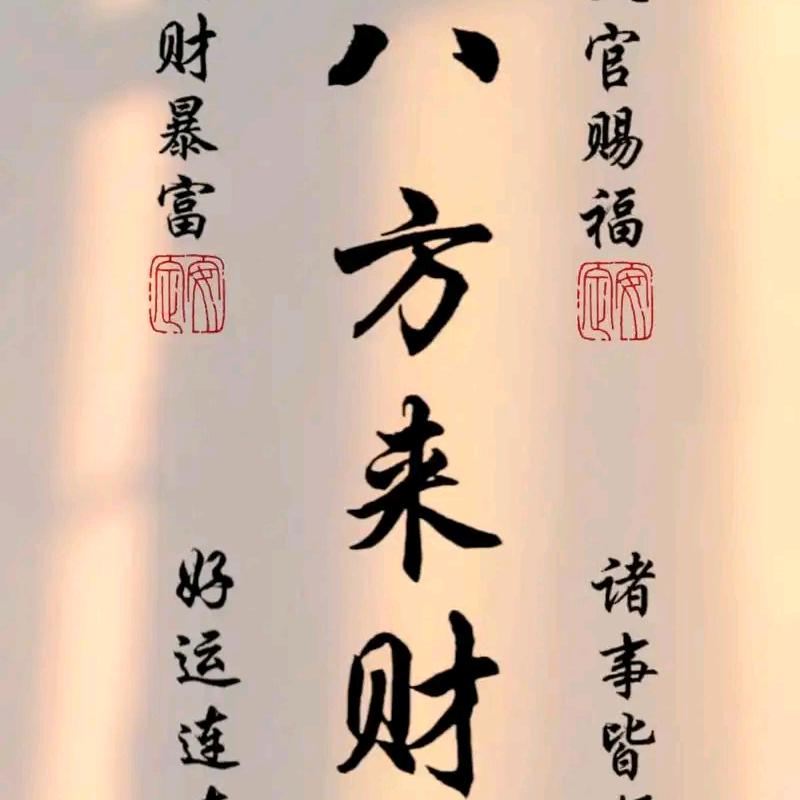 官赐福
安定
诸事皆
八方来财
财暴富
安定
好运连